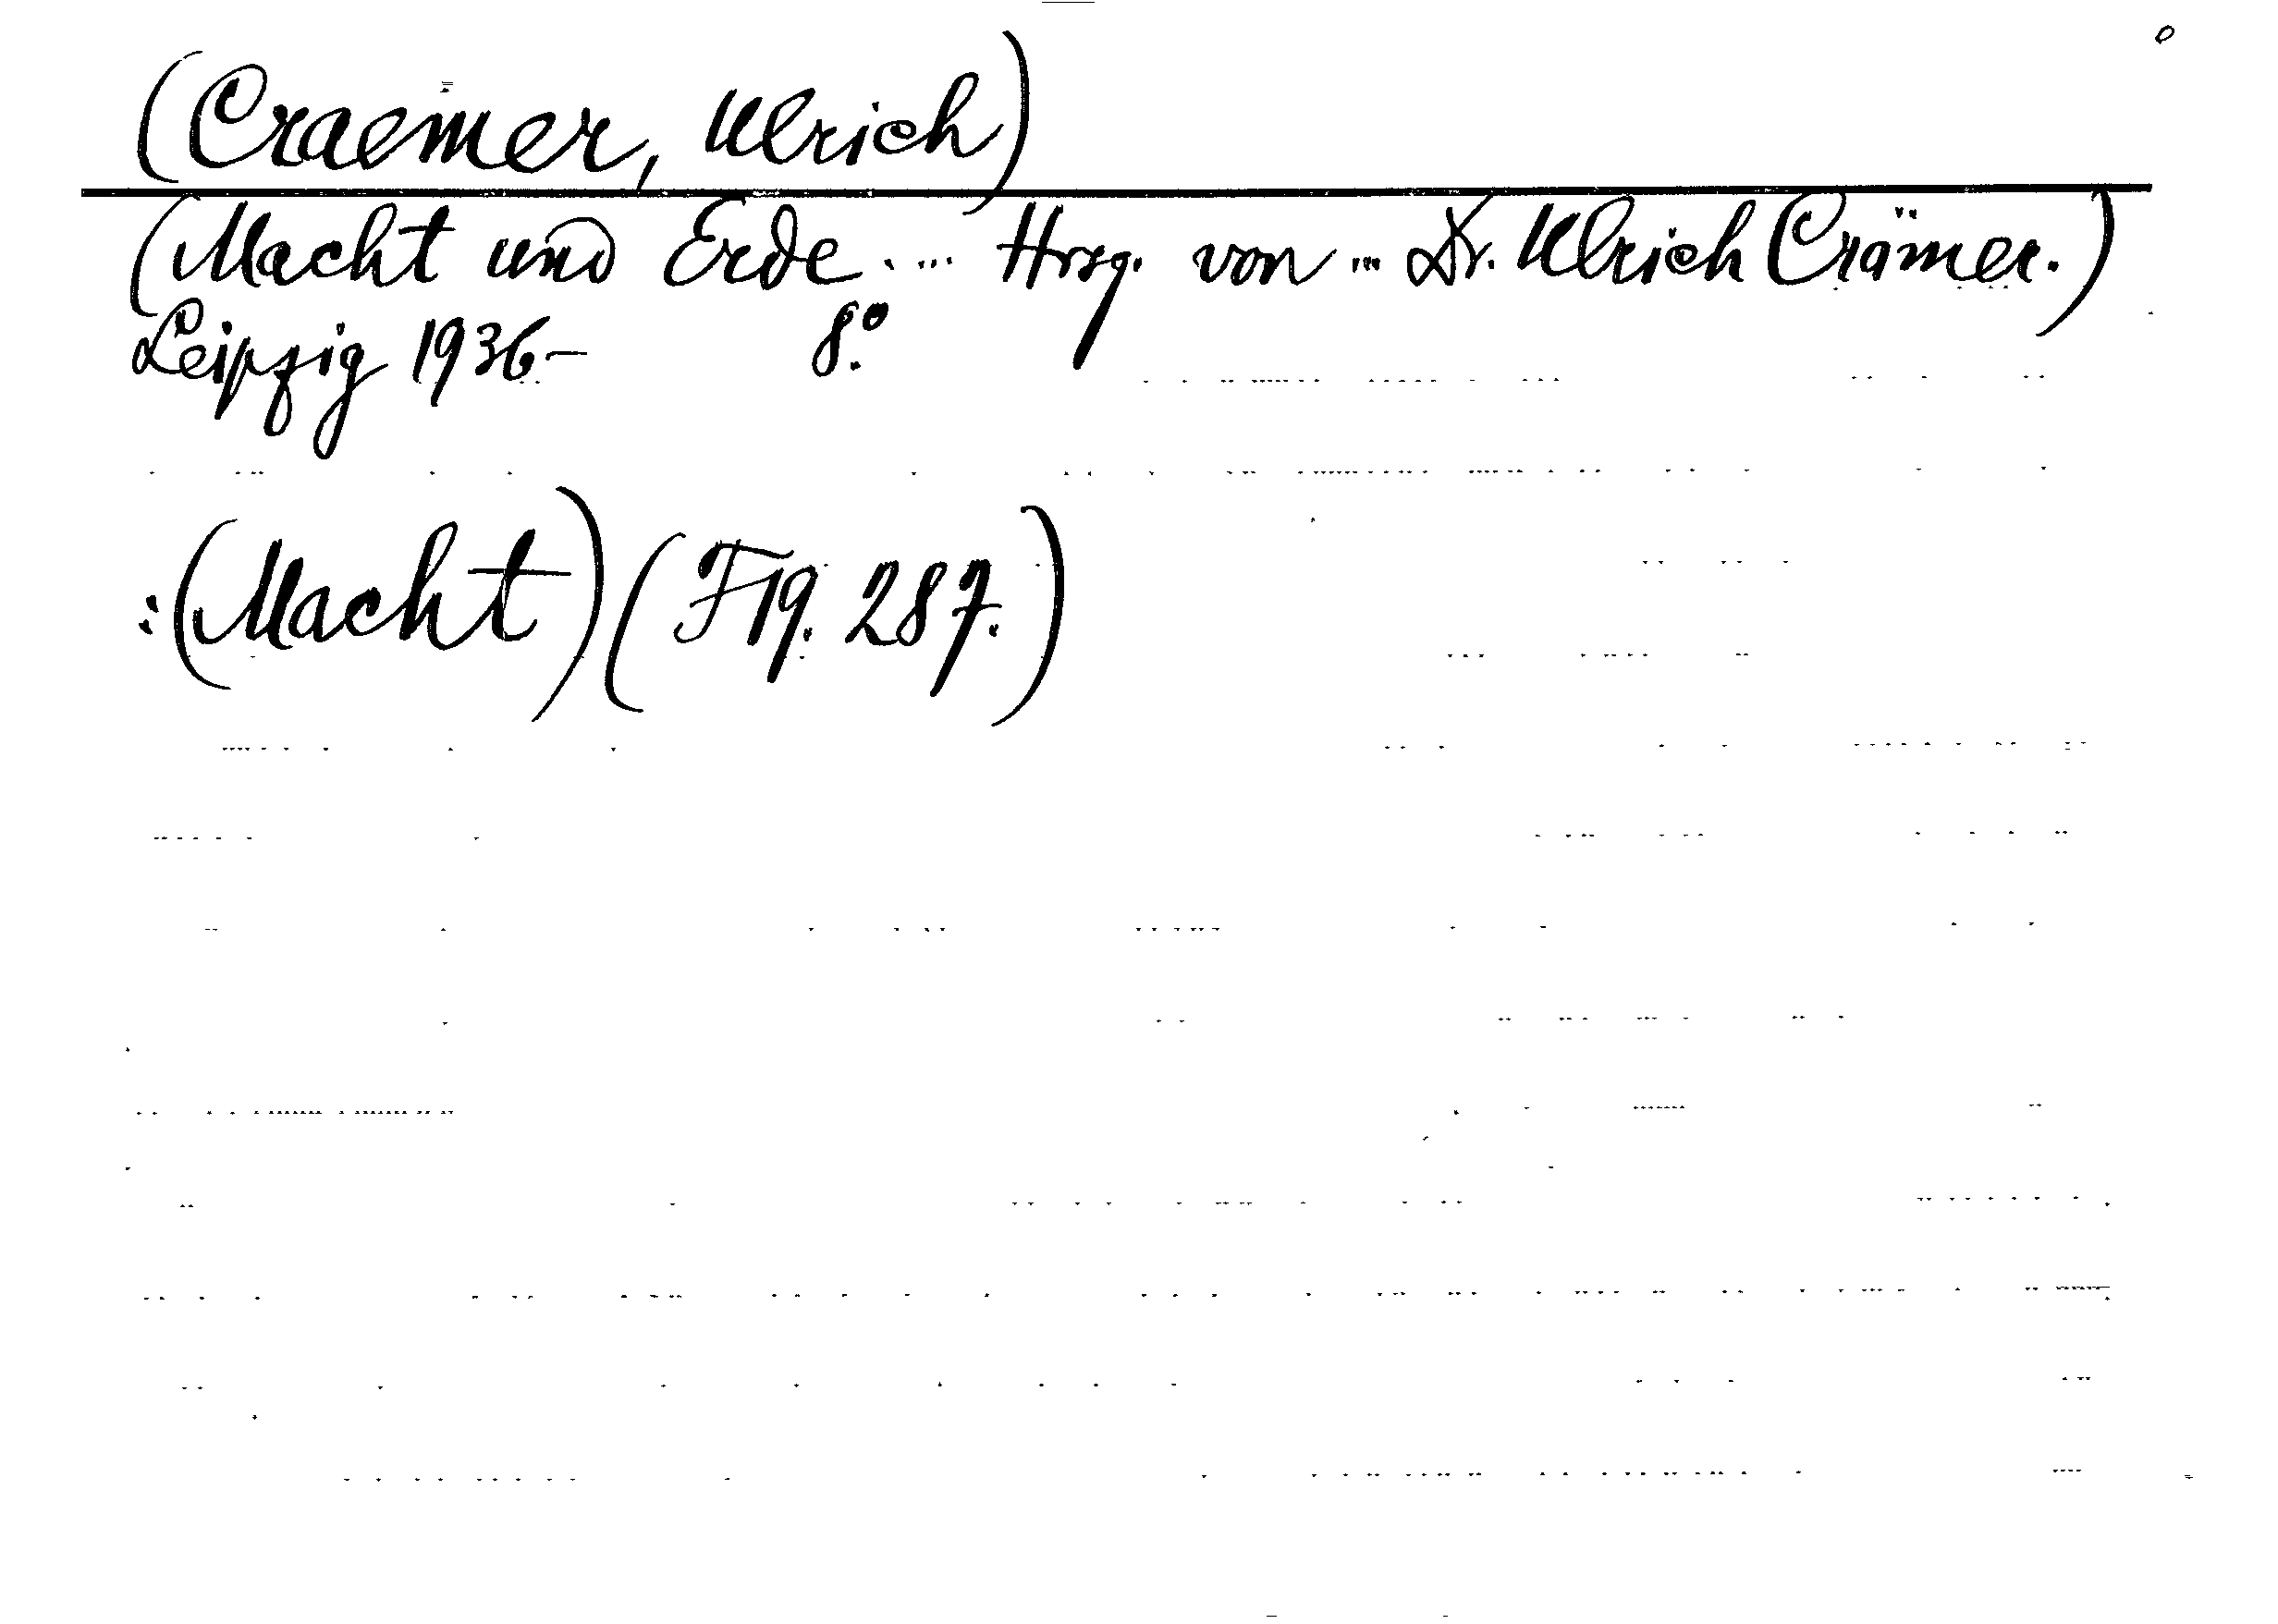 (Craemer, Ulrich)
(Macht und Erde. ... Hrsg. von ... Dr. Ulrich Crämer.)
Leipzig 1936- 8.º
:(Macht) (F19. 287.)